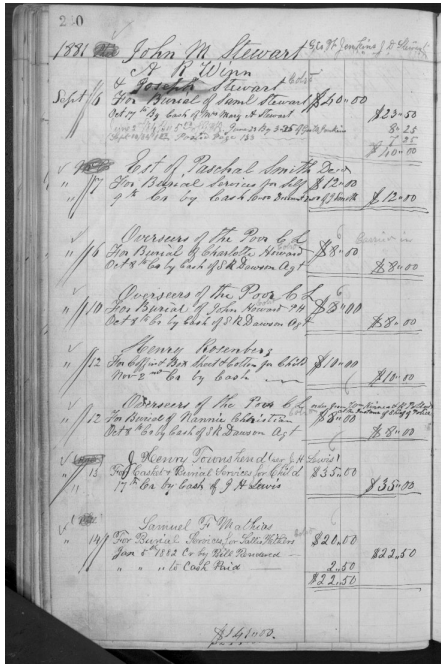 240
1881 John M Stewart Geo W Jenkins J D Stewart
A R Winn
& Joseph Stewart Cold
Sept 6 For Burial of Saml Stewart $40"00
Oct 17th By Cash of Mrs Mary A Stewart $23"50
8"25
$40"00
Est of Paschal Smith Decd
" 7 For Burial Services for Self $12"00
9th Cr by Cash $12"00
Overseers of the Poor C L
" 6 For Burial of Charlotte Howard $8"00
Oct 8th Cr by Cash of S R Dawson Agt $8"00
Overseers of the Poor C L
" 10 For Burial of John Howard $8"00
Oct 8th Cr by Cash of S R Dawson Agt $8"00
Henry Rosenberg
" 12 For Coffin & Box Shroud & Cotton for Child $10"00
Nov 2nd Cr by Cash $10"00
Overseers of the Poor C L
" 12 For Burial of Nannie Christian $8"00
Oct 8th Cr by Cash of S R Dawson Agt $8"00
J Henry Townshend (per J H Lewis)
" 13 For Casket & Burial Services for Child $35"00
" 17th Cr by Cash of J H Lewis $35"00
Samuel F Mathias
" 14 For Burial Services for Sallie $20"00
Jan 5th 1882 Cr by Bill Rendered $22"50
" " " to Cash Paid 2"50
$22"50
$141"00